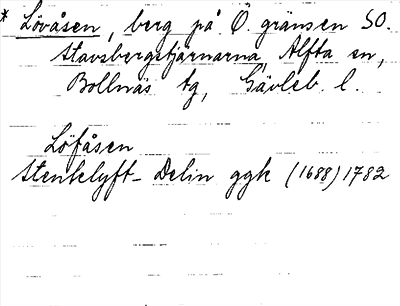 * Lövåsen, berg på Ö. gränsen SO.
Stavsbergstjärnarna, Alfta sn,
Bollnäs tg, Gävleb. l.
Löfåsen
Stenklyft- Delin ggk (1688) 1782